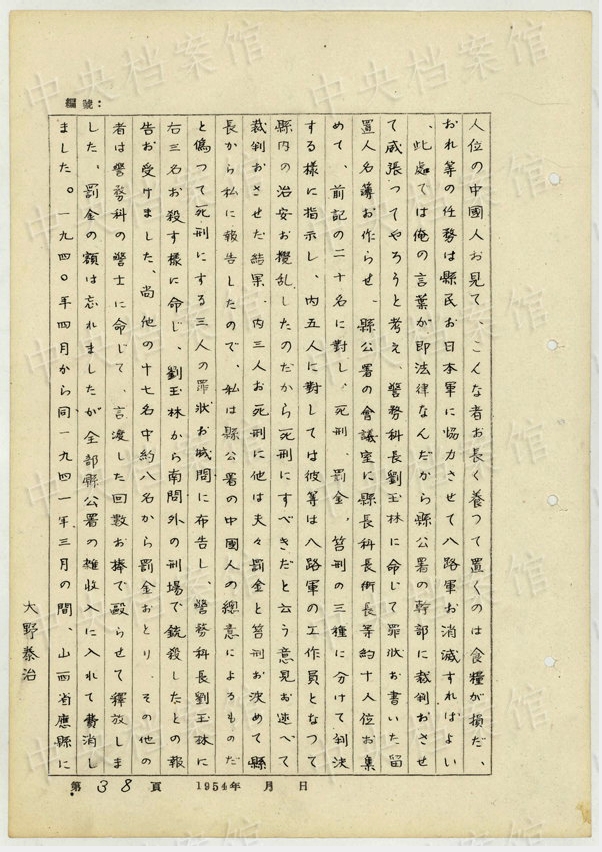 編號：
人位の中國人お見て、こんな者お長く養つて置くのは食糧が損だ、
おれ等の任務は縣民お日本軍に協力させて八路軍お消滅すればよい
、此處では俺の言葉が即法律なんだから縣公署の幹部に裁判おさせ
て威張つてやろうと考え、警務科長劉玉林に命じて罪状お書いた留
置人名簿お作らせ、縣公署の會議室に縣長科長術長等約十人位お集
めて、前記の二十名に対し、死刑、罰金、笞刑の三種に分けて判決
する様に指示し、内五人に対しては彼等は八路軍の工作員となつて
縣内の治安お攪乱したのだから死刑にすべきだと云う意見お述べて
裁判おさせた結果、内三人お死刑に他は夫々罰金と笞刑お決めて縣
長から私に報告したので、私は縣公署の中國人の總意によるものだ
と偽つて死刑にする三人の罪状お城門に布告し、警務科長劉玉林に
右三名お殺す様に命じ、劉玉林から南門外の刑場で銃殺したとの報
告お受けました、尚他の十七名中約八名から罰金おとり、その他の
者は警務科の警士に命じて、言渡した回数お棒で毆らせて釋放しま
した、罰金の額は忘れましたが全部縣公署の雑收入に入れて費消し
ました。一九四〇年四月から同一九四一年三月の間、山西省應縣に
大野泰治
第38頁 1954年 月 日
中央档案馆